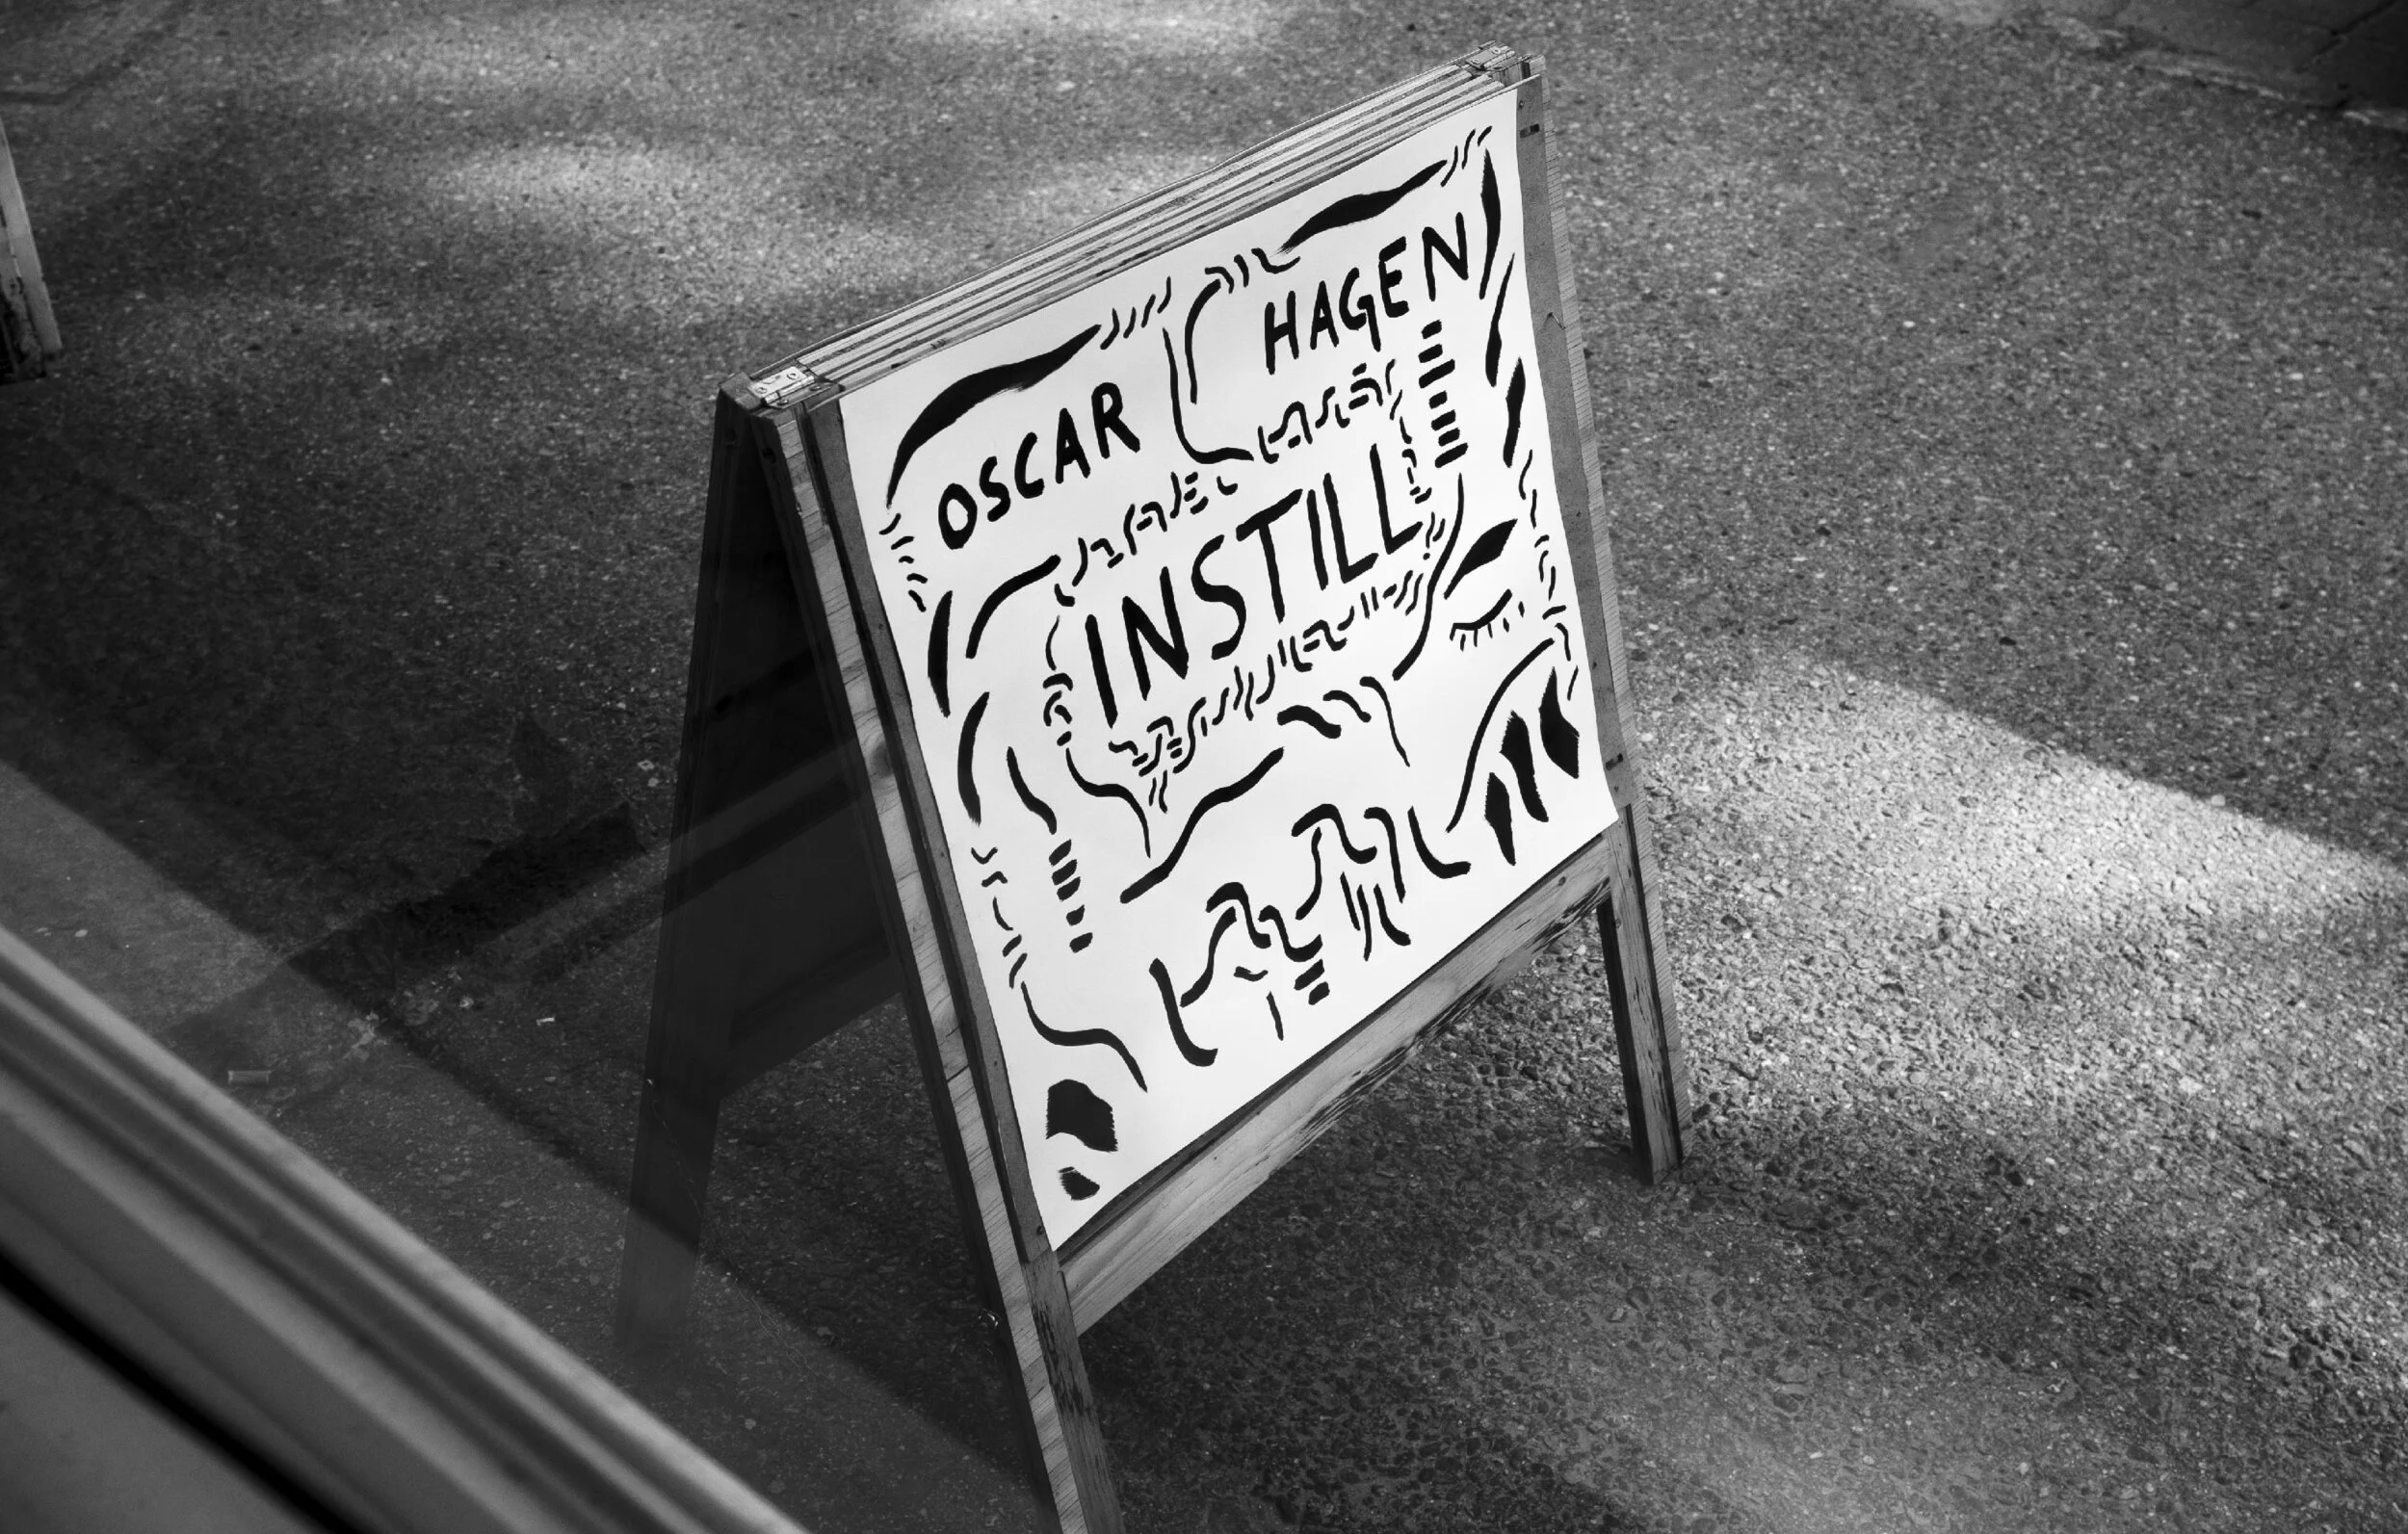 OSCAR HAGEN
INSTILL